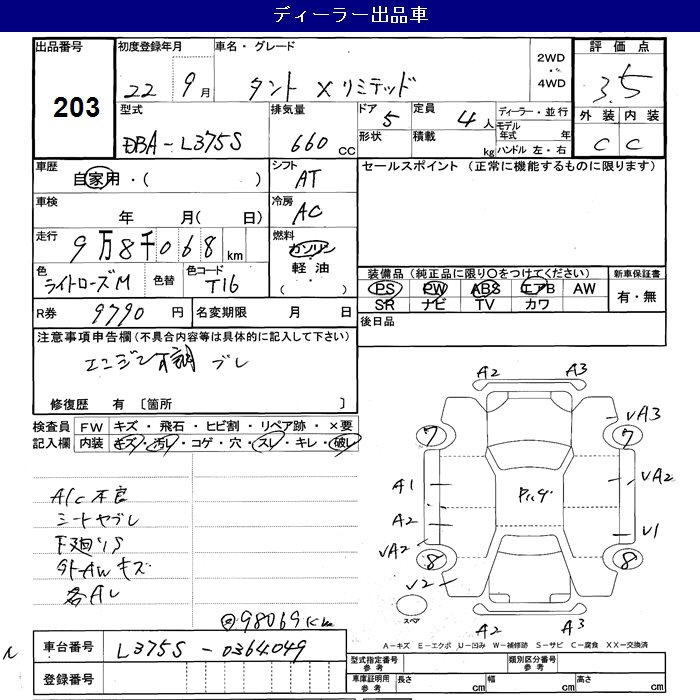 ディーラー出品車
出品番号 203
初度登録年月 22年 9月
車名・グレード タント Xリミテッド
2WD ・ 4WD
評価点 3.5
外装 C 内装 C
型式 DBA-L375S
排気量 660 CC
ドア 5
形状
定員 4人
積載 kg
ディーラー・並行
モデル年式 年
ハンドル 左・右
車歴 自家用・( )
シフト AT
車検 年 月( 日)
冷房 AC
走行 9万8千068 km
燃料 ガソリン 軽油 ( ・ )
色 ライトローズM 色替
色コード T16
R券 9790 円
名変期限 月 日
セールスポイント (正常に機能するものに限ります)
装備品(純正品に限り○をつけてください)
PS PW ABS エアB AW
SR ナビ TV カワ
新車保証書 有・無
後日品
注意事項申告欄(不具合内容等は具体的に記入して下さい)
エンジン不調 ブレ
修復歴 有 〔箇所 〕
検査員記入欄
FW キズ・飛石・ヒビ割・リペア跡・×要
内装 キズ・汚れ・コゲ・穴・スレ・キレ・破レ
A/c不良
シートヤブレ
下廻りS
外AWキズ
各Aレ
98069km
A2 A3
7 7
VA3
A1
VA2
A2
VA2
V1
8 8
V2
スペア
A2 A3
車台番号 L375S-0364049
登録番号
A-キズ E-エクボ U-凹み W-補修跡 S-サビ C-腐食 XX-交換済
型式指定番号 参考
類別区分番号 参考
車庫証明用 参考 長さ cm 幅 cm 高さ cm